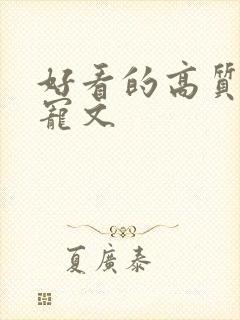 好看的高質
寵文
夏廣泰